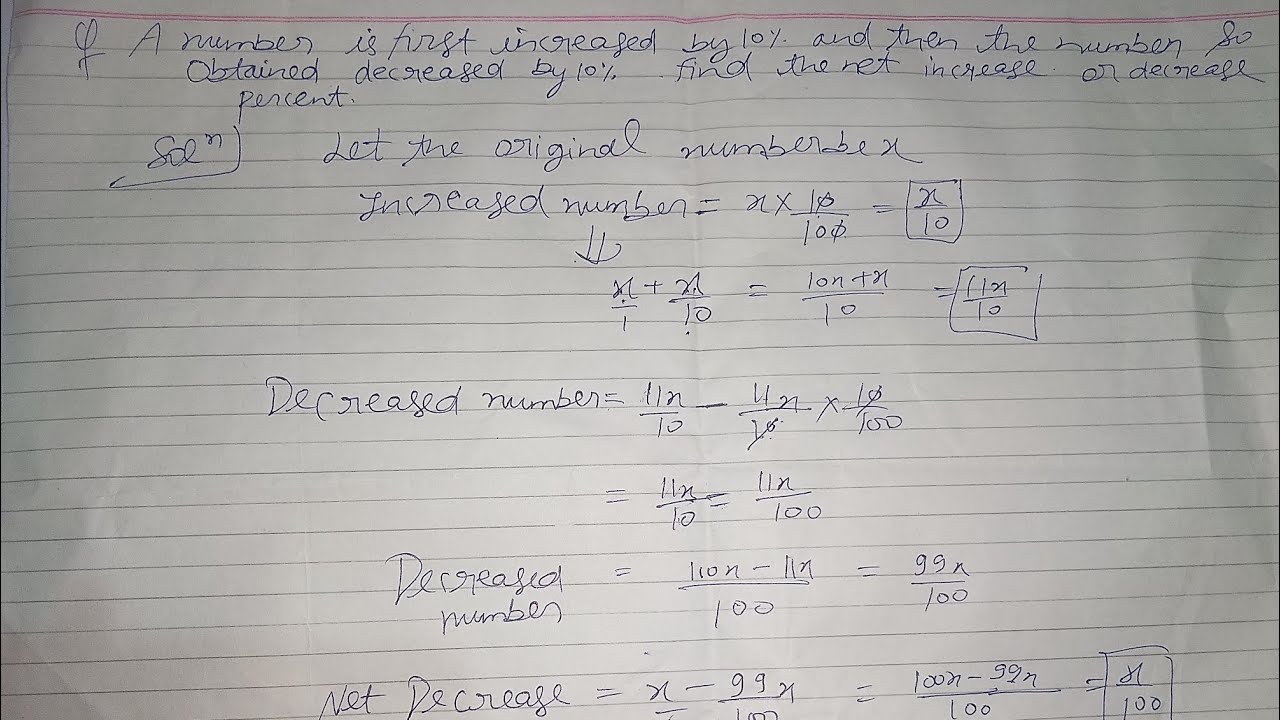 Q A number is first increased by 10% and then the number so
obtained decreased by 10% find the net increase or decrease
percent.
Solⁿ) Let the original number be x
Increased number = x × 10/100 = x/10
⇓
x/1 + x/10 = 10x+x/10 = 11x/10
Decreased number = 11x/10 - 11x/10 × 10/100
= 11x/10 = 11x/100
Decreased number = 110x - 11x/100 = 99x/100
Net Decrease = x/1 - 99x/100 = 100x - 99x/100 = x/100